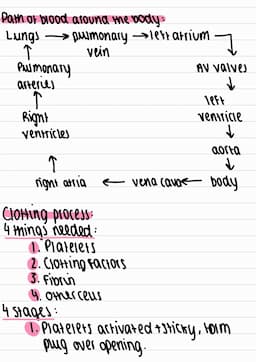 Path of blood around the body:
Lungs → pulmonary → left atrium
vein
Pulmonary
arteries
AV valves
left
ventricle
Right
ventricles
aorta
right atria ← vena cava ← body
Clotting process:
4 things needed:
1. Platelets
2. Clotting factors
3. Fibrin
4. other cells
4 stages:
1. Platelets activated + sticky, form
plug over opening.